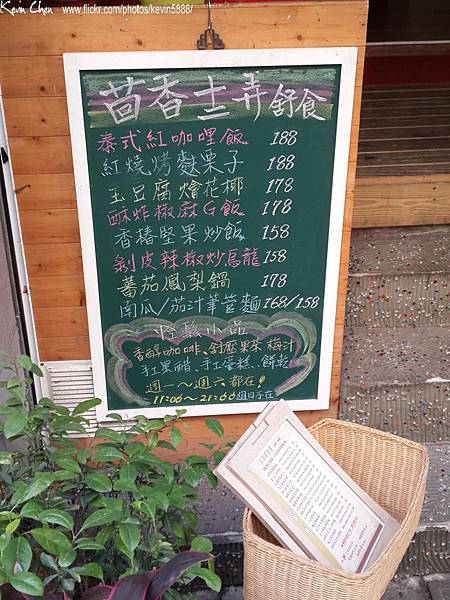 Kevin Chen www.flickr.com/photos/kevin5888/
茴香十三弄 舒食
泰式紅咖哩飯 188
紅燒烤麩栗子 188
玉豆腐燴花椰 178
酥炸椒麻G飯 178
香椿堅果炒飯 158
剝皮辣椒炒烏龍 158
蕃茄鳳梨鍋 178
南瓜/茄汁筆管麵 168/158
輕鬆小品
香醇咖啡、舒壓果茶 梅汁
手工果醋、手工蛋糕、餅乾
週一~週六都在!
11:00~21:00 週日不在